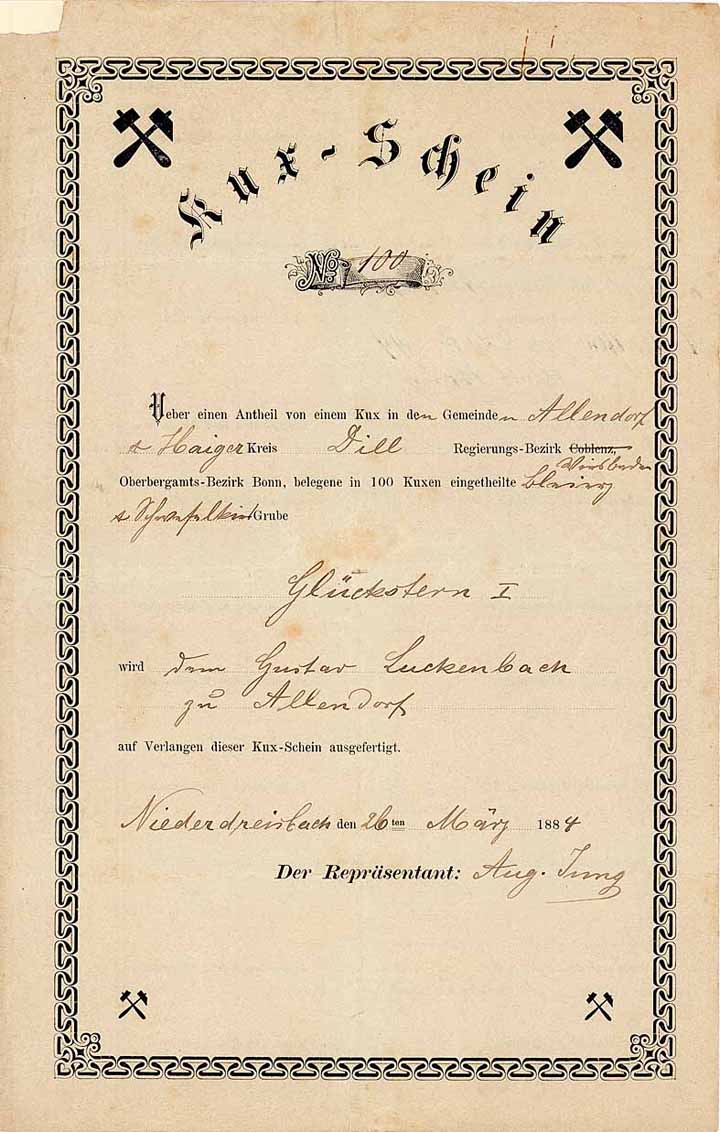 Kux-Schein
No 100
Ueber einen Antheil von einem Kux in den Gemeinden Allendorf
& Haiger Kreis Dill Regierungs-Bezirk Coblenz, Wiesbaden
Oberbergamts-Bezirk Bonn, belegene in 100 Kuxen eingetheilte Bleierz
& Schwefelkies Grube
Glückstern I
wird dem Gustav Luckenbach
zu Allendorf
auf Verlangen dieser Kux-Schein ausgefertigt.
Niederdreisbach den 26ten März 1884
Der Repräsentant: Aug. Jung